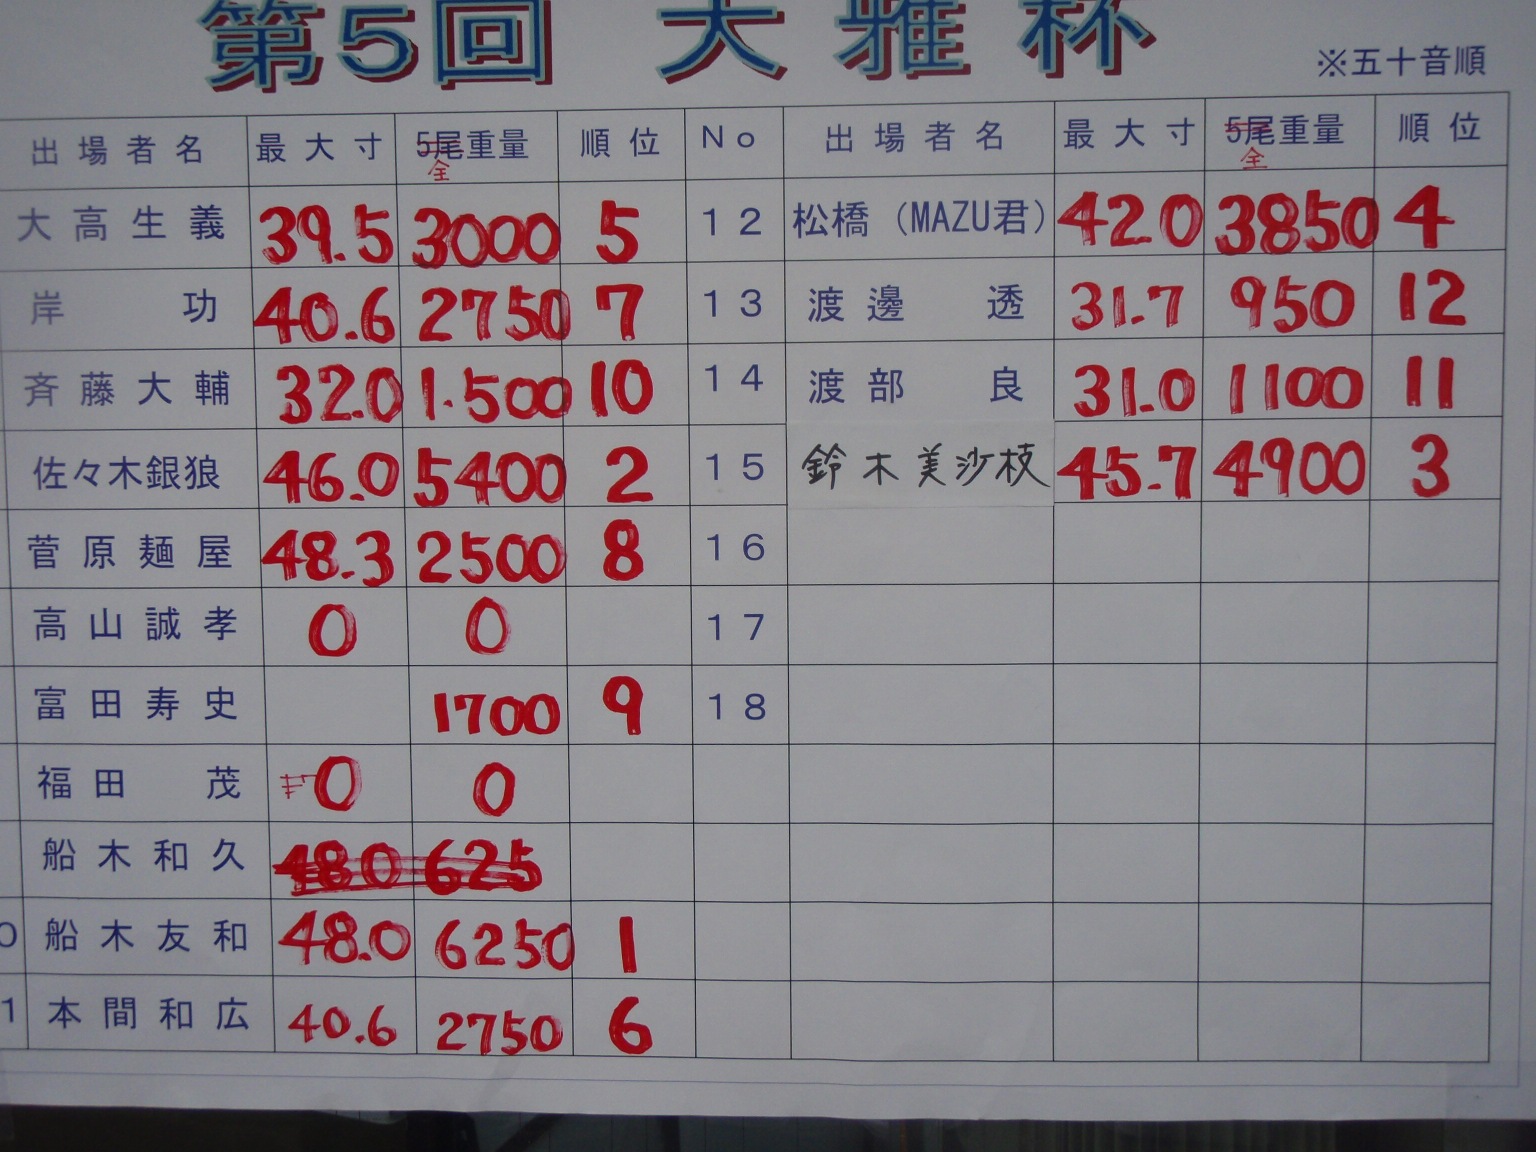 第5回 大雅杯
※五十音順
出場者名 最大寸 5尾重量 順位 No 出場者名 最大寸 5尾重量 順位
全 全
大高生義 39.5 3000 5 12 松橋（MAZU君） 42.0 3850 4
岸 功 40.6 2750 7 13 渡邊 透 31.7 950 12
斉藤大輔 32.0 1.500 10 14 渡部 良 31.0 1100 11
佐々木銀狼 46.0 5400 2 15 鈴木美沙枝 45.7 4900 3
菅原麺屋 48.3 2500 8 16
高山誠孝 0 0 17
富田寿史 1700 9 18
福田 茂 0 0
船木和久 48.0 625
0 船木友和 48.0 6250 1
1 本間和広 40.6 2750 6